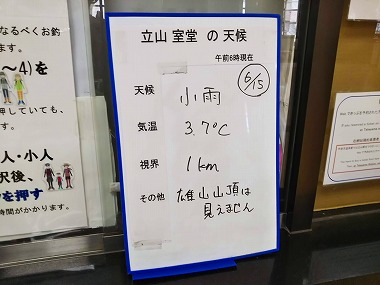 立山 室堂 の 天候
午前6時現在
6/15
天候 小雨
気温 3.7℃
視界 1km
その他 雄山山頂は
見えません
なるべくお釣
～4)を
押していても、
人・小人
沢後、
を押す
時間がかかります。